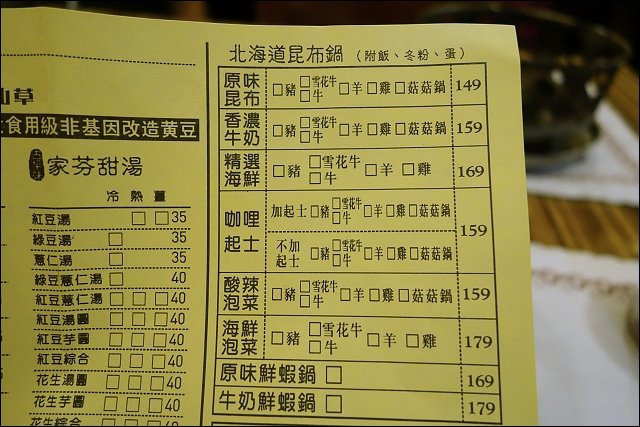 仙草
食用級非基因改造黃豆
家芬甜湯
冷 熱 薑
紅豆湯 □ □ 35
綠豆湯 □ 35
薏仁湯 □ 35
綠豆薏仁湯 □ 40
紅豆薏仁湯 □ □ □ 40
紅豆湯圓 □ □ □ 40
紅豆芋圓 □ □ □ 40
紅豆綜合 □ □ □ 40
花生湯圓 □ □ □ 40
花生芋圓 □ □ □ 40
花生綜合 □ □ □ 40
北海道昆布鍋 (附飯、冬粉、蛋)
原味昆布 □豬 □雪花牛 □牛 □羊 □雞 □菇菇鍋 149
香濃牛奶 □豬 □雪花牛 □牛 □羊 □雞 □菇菇鍋 159
精選海鮮 □豬 □雪花牛 □牛 □羊 □雞 169
咖哩起士 加起士 □豬 □雪花牛 □牛 □羊 □雞 □菇菇鍋 159
不加起士 □豬 □雪花牛 □牛 □羊 □雞 □菇菇鍋
酸辣泡菜 □豬 □雪花牛 □牛 □羊 □雞 □菇菇鍋 159
海鮮泡菜 □豬 □雪花牛 □牛 □羊 □雞 179
原味鮮蝦鍋 □ 169
牛奶鮮蝦鍋 □ 179